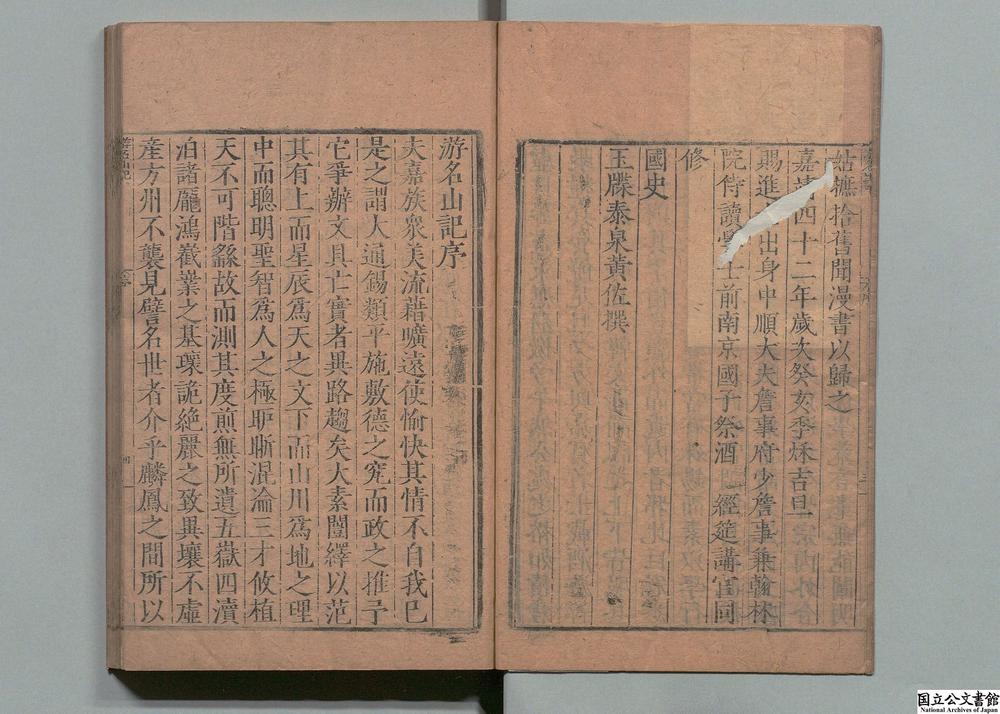 姑摭拾舊聞漫書以歸之
嘉靖四十二年歲次癸亥季秌吉旦
賜進士出身中順大夫詹事府少詹事兼翰林
院侍讀學士前南京國子祭酒 經筵講官同
修
國史
玉牒泰泉黃佐撰
游名山記序
夫嘉族衆美流藉曠遠使愉快其情不自我巳
是之謂人大通錫類平施敷德之究而政之推予
它爭辦文具亡實者異路趨矣大素闓繹以范
其有上而星辰爲天之文下而山川爲地之理
中而聰明聖智爲人之極眂晣混淪三才攸植
天不可階繇故而測其度煎無所遺五嶽四瀆
泊諸龎鴻嶻嶪之基瓌詭絶麗之致異壤不虛
産方州不襲見譬名世者介乎麟鳳之間所以
国立公文書館
National Archives of Japan